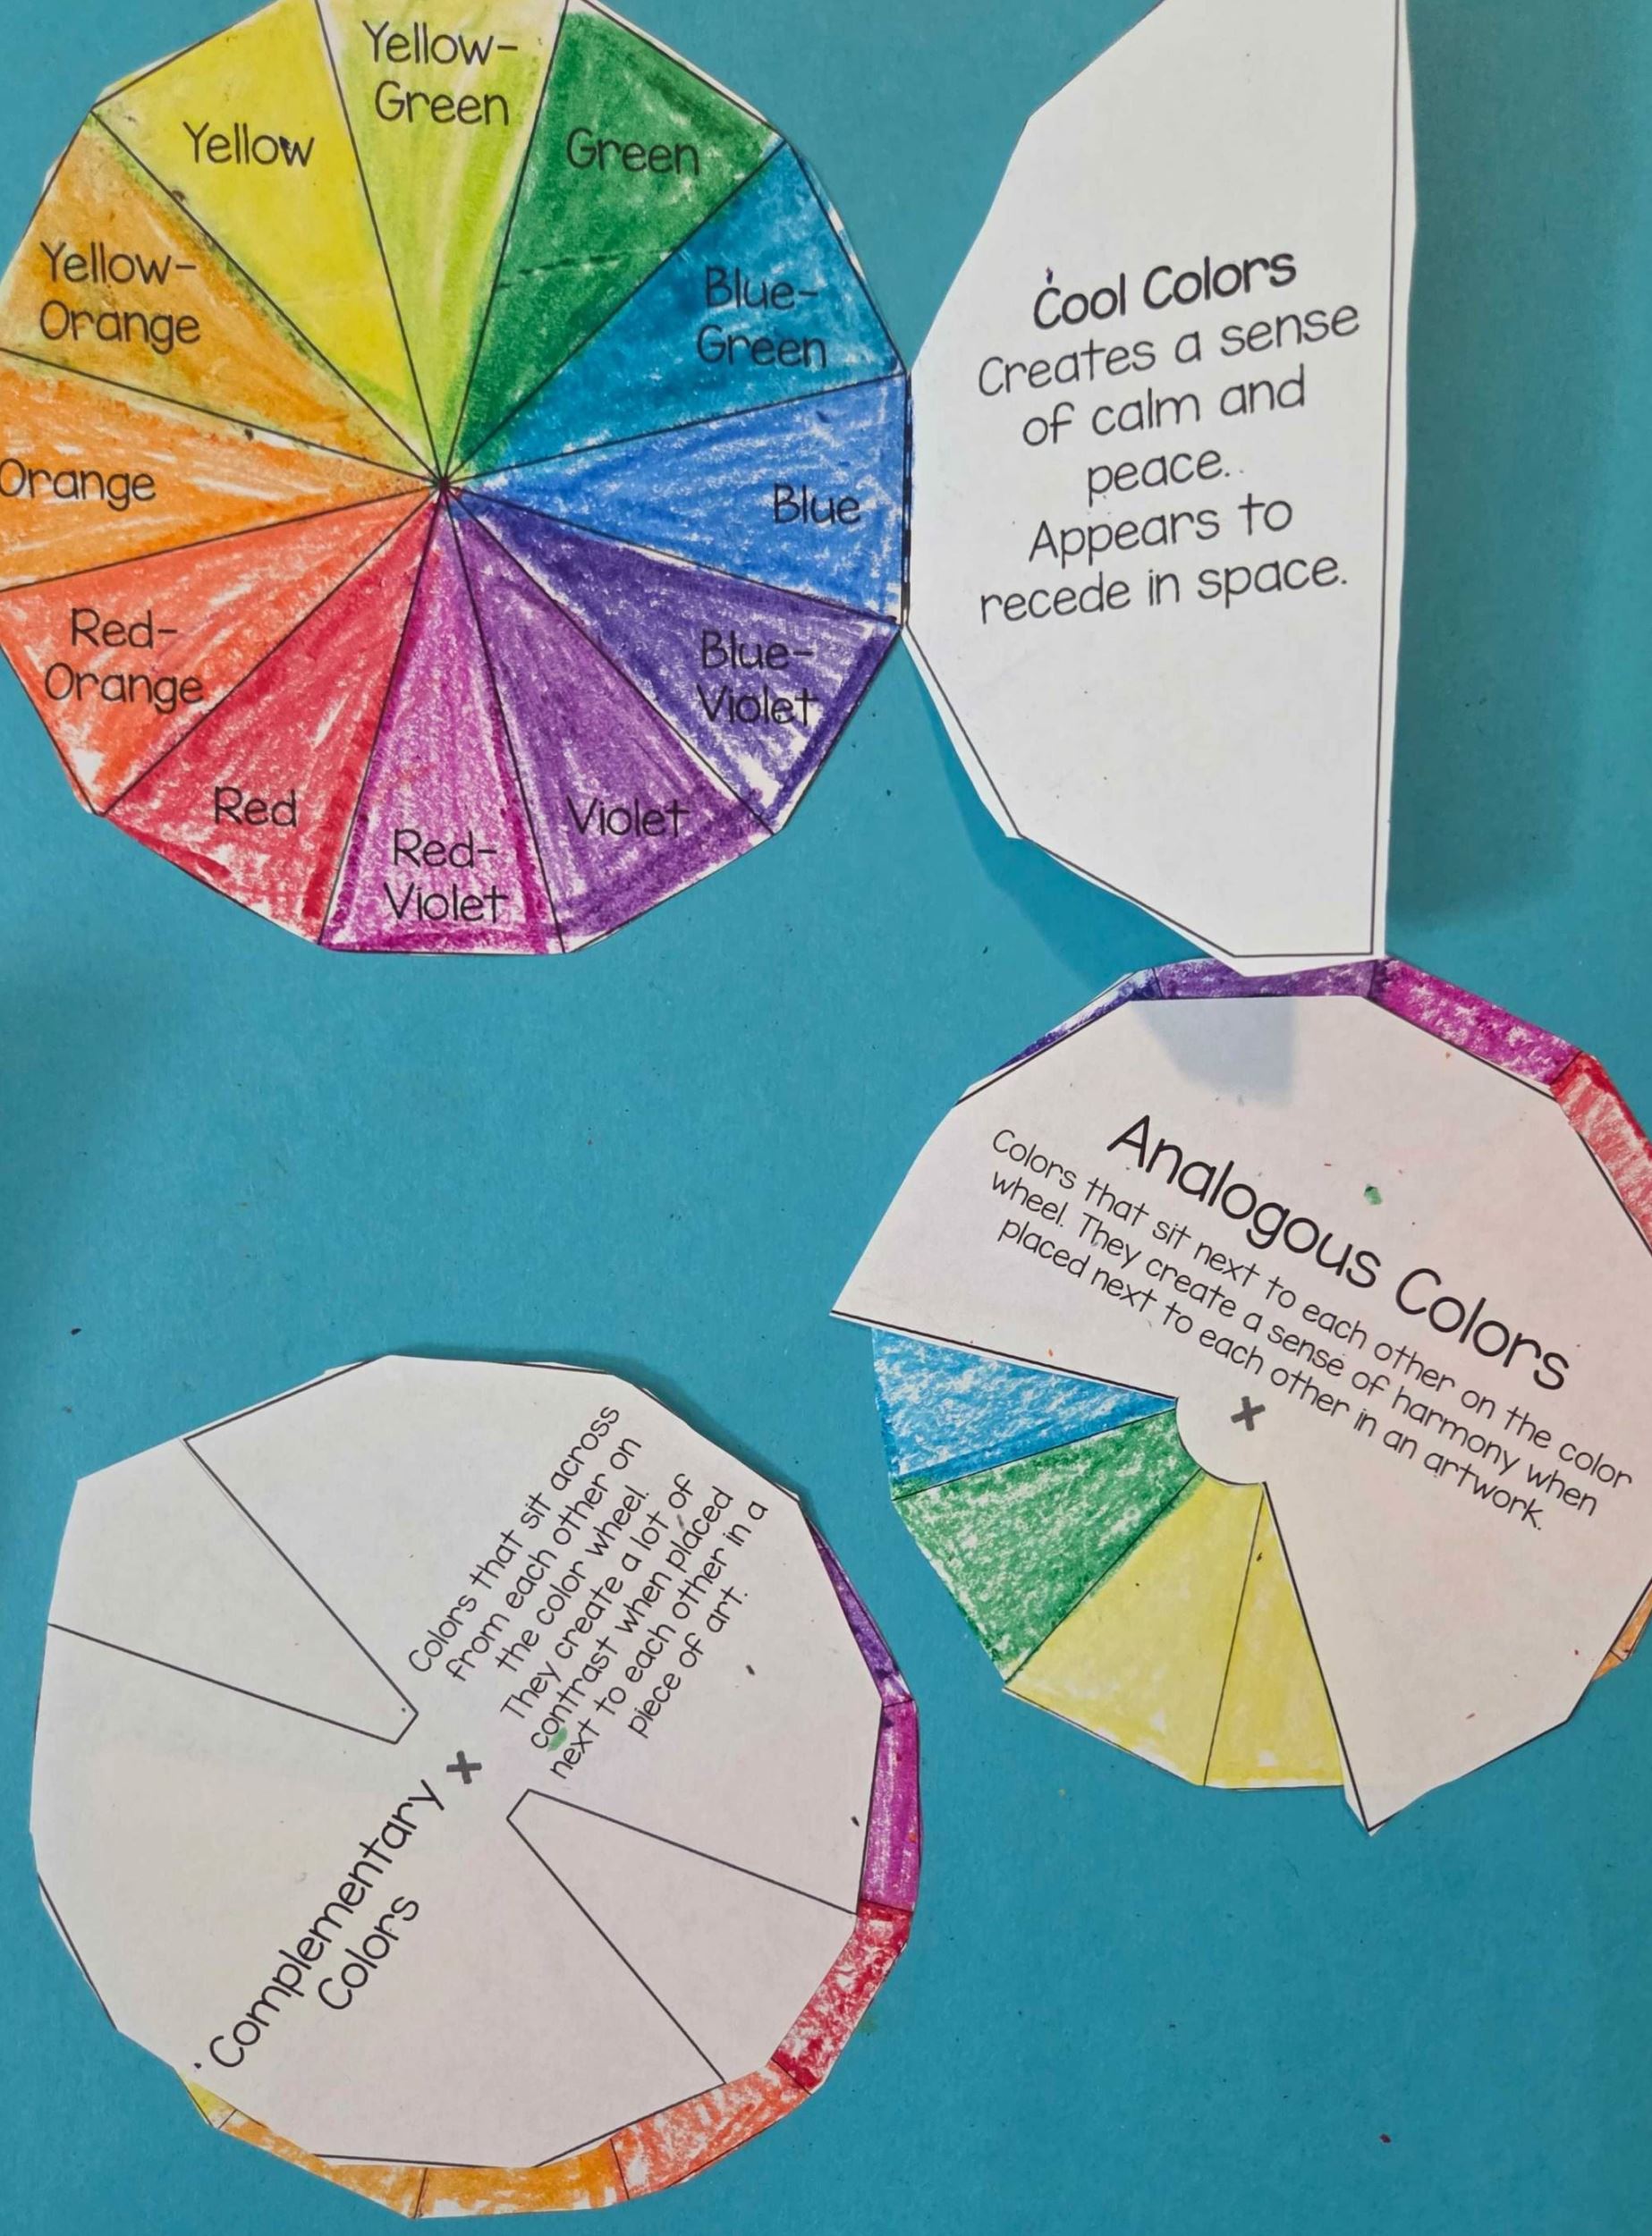 Yellow-
Green
Yellow
Green
Yellow-
Orange
Blue-
Green
Orange
Blue
Red-
Orange
Blue-
Violet
Red
Violet
Red-
Violet
Cool Colors
Creates a sense
of calm and
peace.
Appears to
recede in space.
Analogous Colors
Colors that sit next to each other on the color
wheel. They create a sense of harmony when
placed next to each other in an artwork.
Colors that sit across
from each other on
the color wheel.
They create a lot of
contrast when placed
next to each other in a
piece of art.
Complementary
Colors